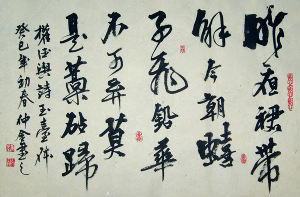 昨夜裙帶
解今朝蟢
子飛鉛華
不可棄莫
是藁砧歸
權德輿詩玉臺體
癸巳年初春仲金書之